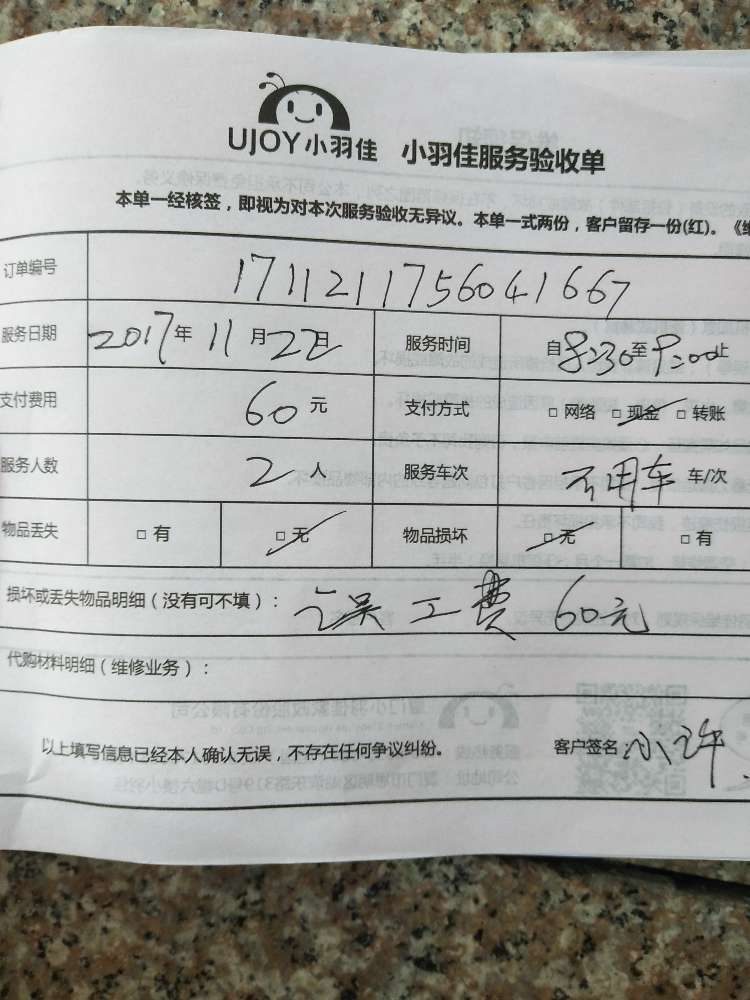 UJOY小羽佳 小羽佳服务验收单
本单一经核签，即视为对本次服务验收无异议。本单一式两份，客户留存一份(红)。《维
订单编号 1711211756041667
服务日期 2017年 11月22日 服务时间 自8:30至9:00止
支付费用 60元 支付方式 □网络 □现金 □转账
服务人数 2人 服务车次 不用车 车/次
物品丢失 □有 □无 物品损坏 □无 □有
损坏或丢失物品明细（没有可不填）： 误工费 60元
代购材料明细（维修业务）：
以上填写信息已经本人确认无误，不存在任何争议纠纷。 客户签名: 小许